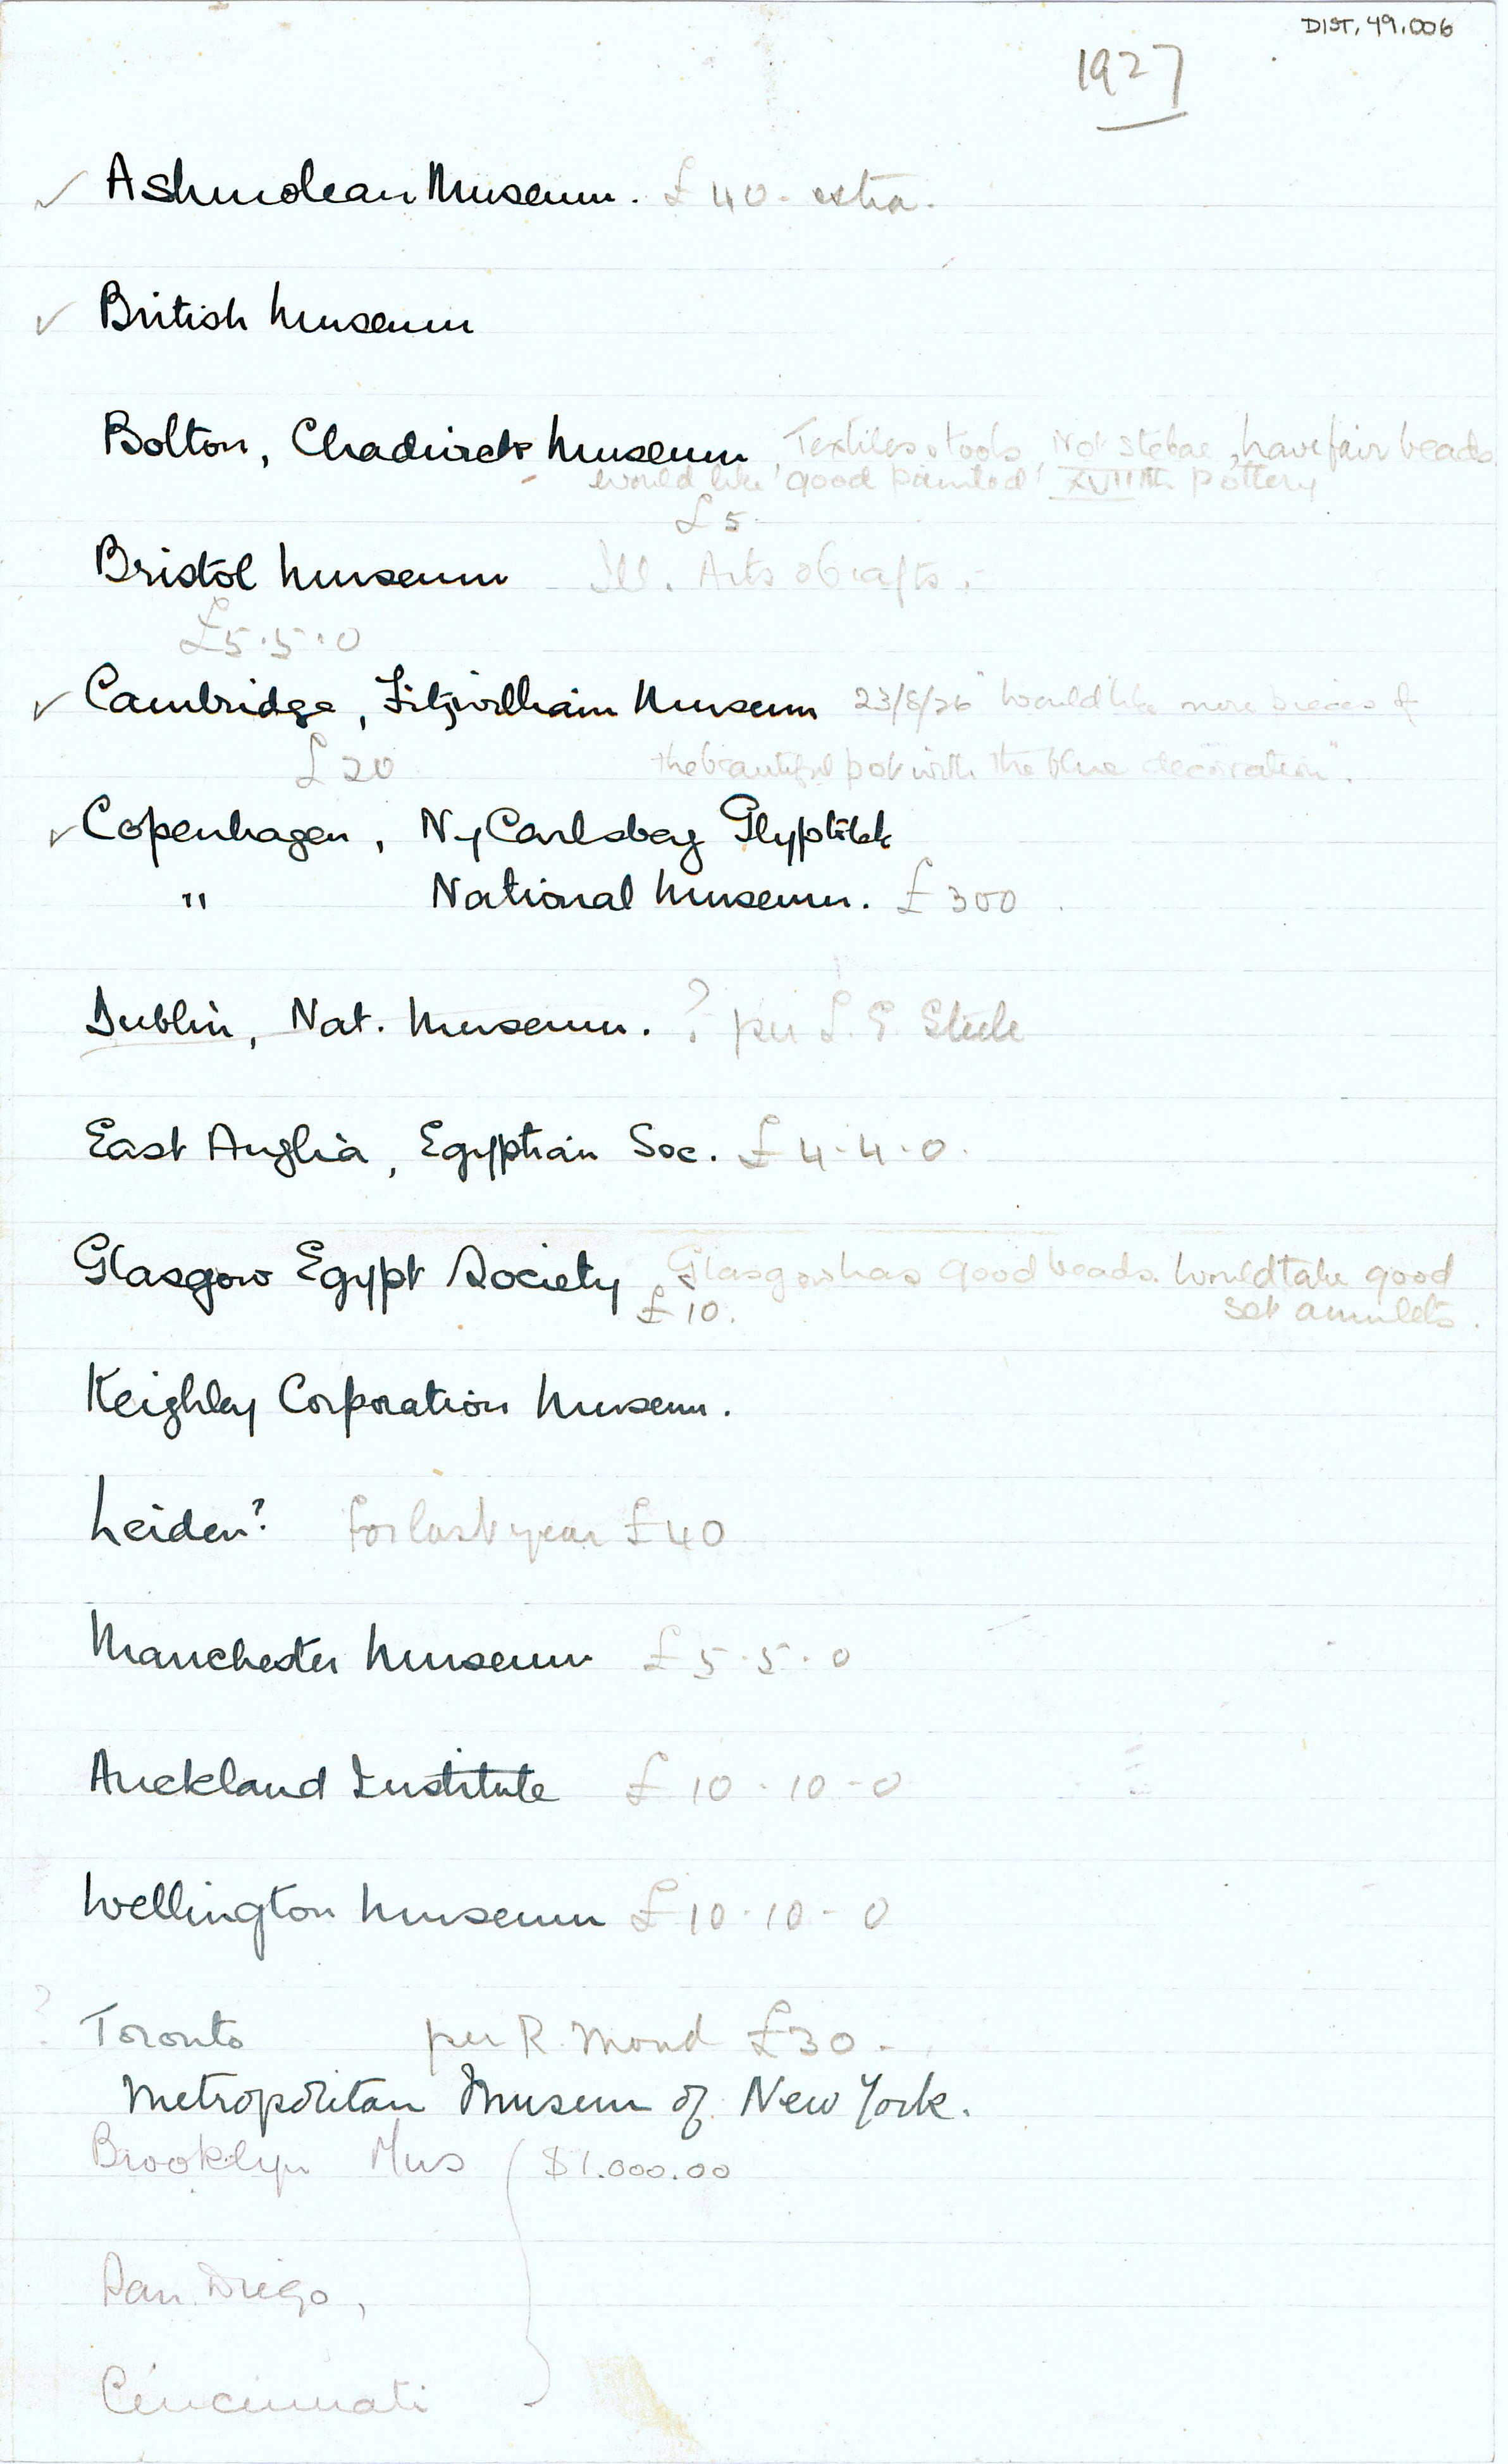 DIST. 49.006
1927
✓ Ashmolean Museum. £40 - extra.
✓ British Museum
Bolton, Chadwick Museum, Textiles & tools, Not stelae, have fair beads
would like 'good painted' XVIIIth pottery
£5 -
Bristol Museum Ill. Arts & Crafts.
£5.5.0
✓ Cambridge, Fitzwilliam Museum 23/8/26 "would like more pieces of
£20 the beautiful pot with the blue decoration".
✓ Copenhagen, Ny Carlsberg Glyptotek
" National Museum. £300
Dublin, Nat. Museum. ? per L. E. Steele
East Anglia, Egyptian Soc. £4.4.0.
Glasgow Egypt Society Glasgow has good beads. Would take good
£10. set amulets.
Keighley Corporation Museum.
Leiden? for last year £40
Manchester Museum £5.5.0
Auckland Institute £10-10-0
Wellington Museum £10-10-0
? Toronto per R. Mond £30.
Metropolitan Museum of New York.
Brooklyn Mus $1.000.00
San Diego,
Cincinnati